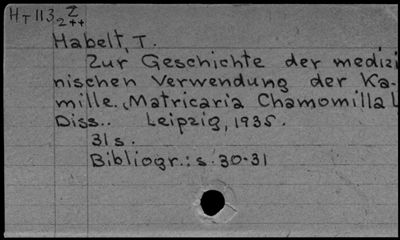 HT113 Z
2++
Habelt, T.
Zur Geschichte der medizi
nischen Verwendung der Ka-
mille. Matricaria Chamomilla L
Diss.. Leipzig, 1935.
31 s.
Bibliogr.: s. 30-31